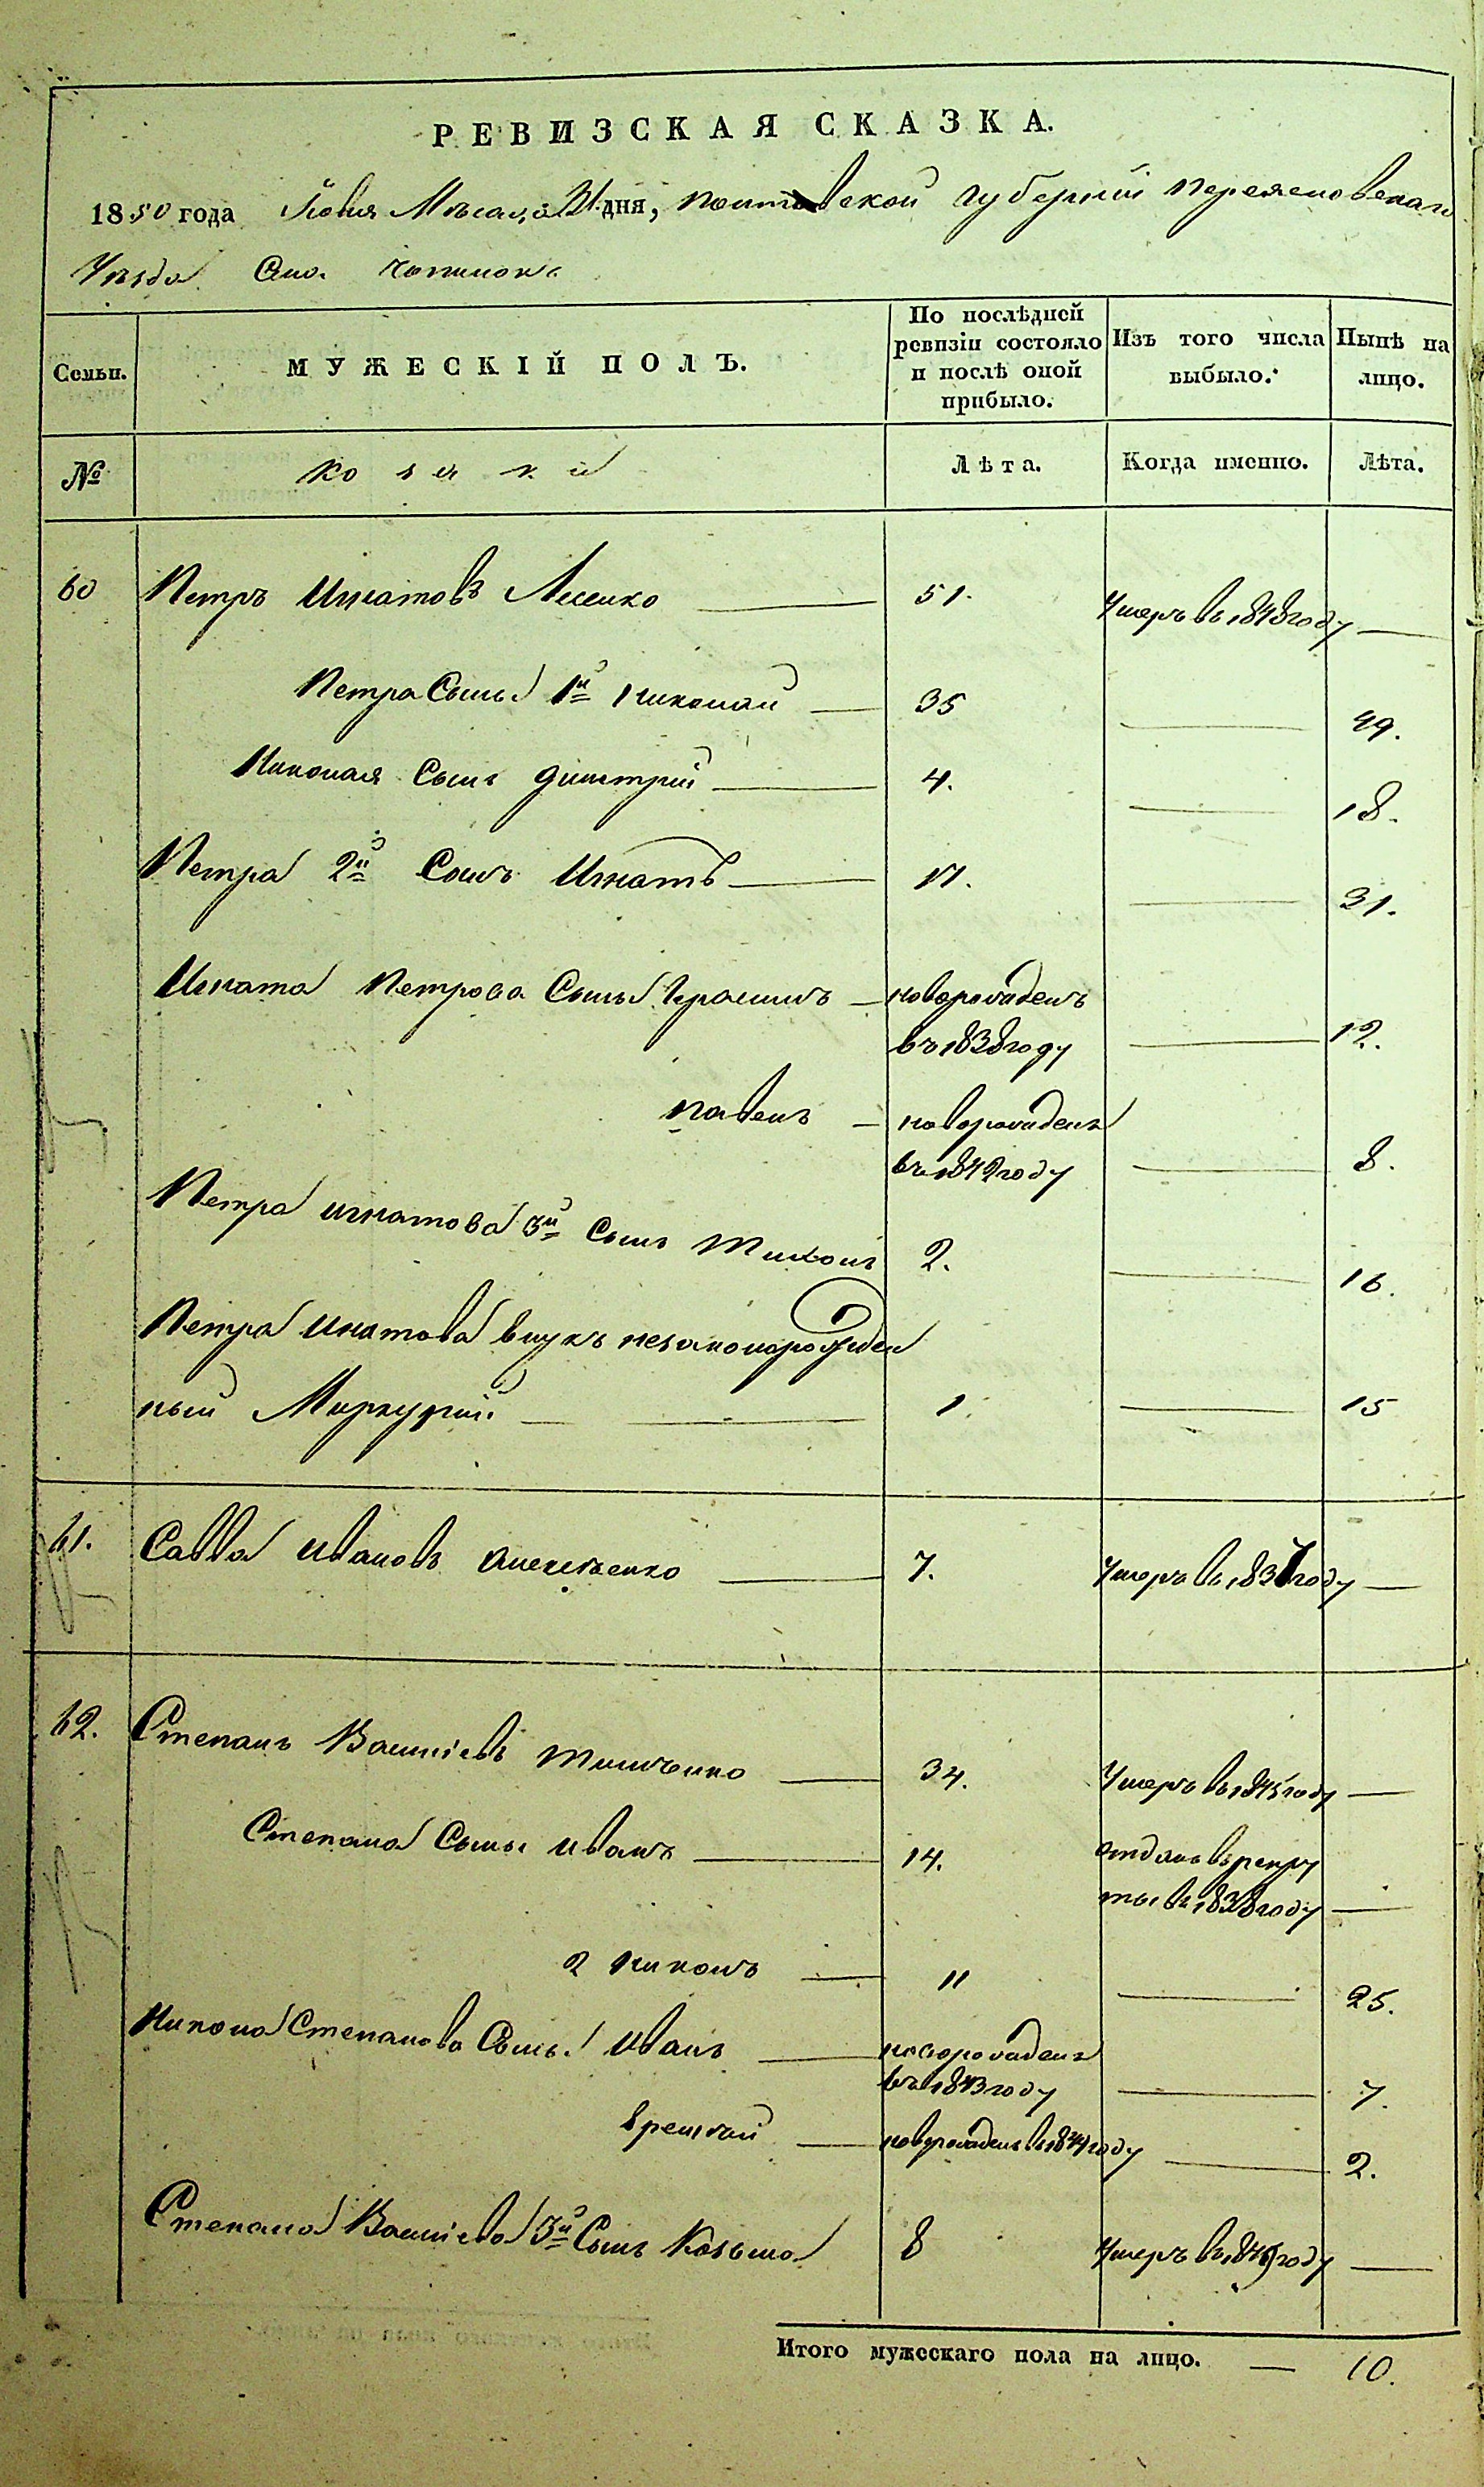 РЕВИЗСКАЯ СКАЗКА.
1850 года Іюня Месяца 31 дня, Полтавской губерніи Переяславскаго
Уѣзда
Семьи.
МУЖЕСКІЙ ПОЛЪ.
По послѣдней ревизіи состояло и послѣ оной прибыло.
Изъ того числа выбыло.
Нынѣ на лицо.
№
козаки
Лѣта.
Когда именно.
Лѣта.
60 Петръ Игнатовъ 51. Умеръ въ 1848 году —
Петра Сынъ 1й Николай — 35 — 49.
Николая Сынъ Димитрій — 4. — 18.
Петра 2й Сынъ Игнатъ — 17. — 31.
Игната Петрова Сынъ Герасимъ — новорожденъ
въ 1838 году — 12.
Павелъ — новорожденъ
въ 1842 году — 8.
Петра Игнатова 3й Сынъ Тихонъ 2. — 16.
Петра Игнатова внукъ незаконорожден
ный Меркурій — 1. — 15
61. Савва Ивановъ Алексѣенко — 7. Умеръ въ 1837 году —
62. Степанъ Василіевъ 34. Умеръ въ 1845 году —
Степана Сынъ Иванъ — 14. отданъ въ рекру
ты въ 1838 году —
2 Никонъ — 11 — 25.
Никона Степанова Сынъ Иванъ — новорожденъ
въ 1843 году — 7.
новорожденъ въ году — 2.
Степана Василіева 3й Сынъ Козьма 8 Умеръ въ году —
Итого мужескаго пола на лицо. — 10.